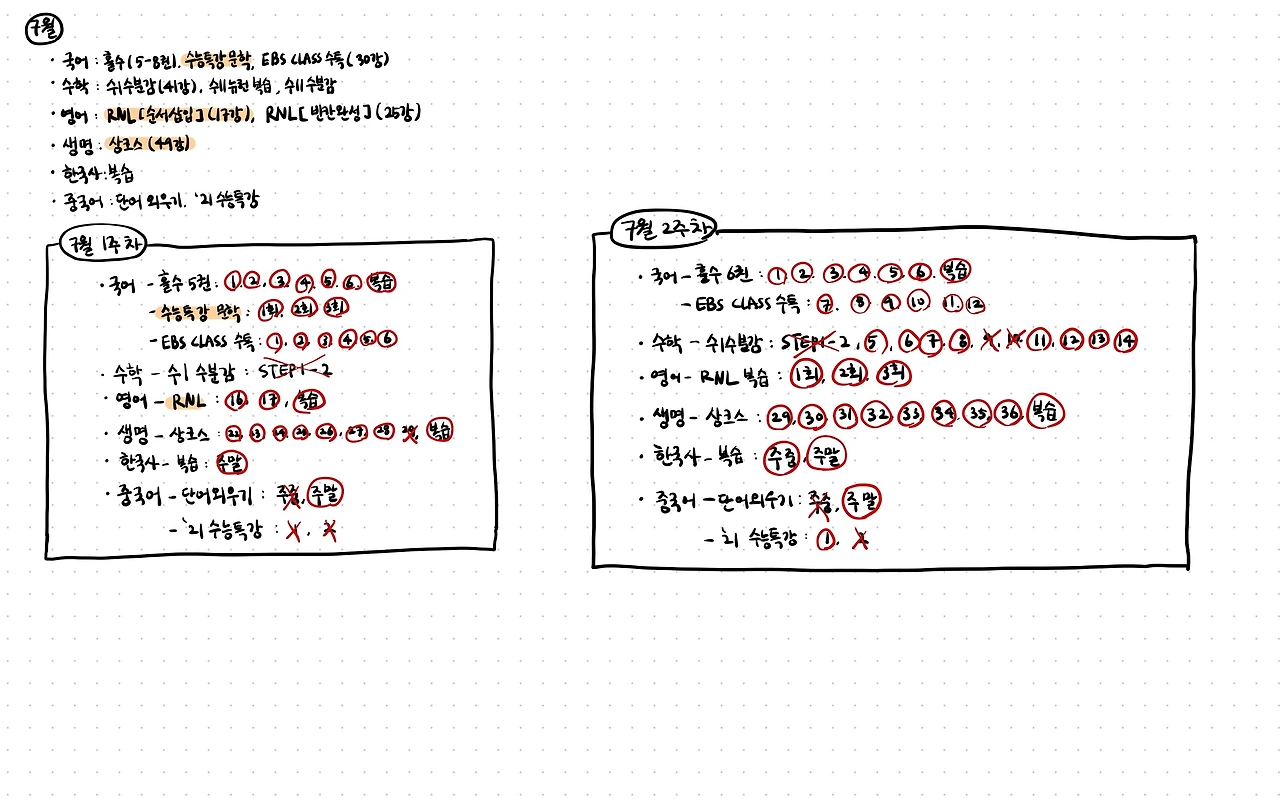 7월
· 국어 : 홀수(5-8권). 수능특강 문학, EBS CLASS 수특(30강)
· 수학 : 수1수분감(41강), 수II뉴런 복습, 수II수분감
· 영어 : RNL[순서삽입](17강), RNL[빈칸완성](25강)
· 생명 : 상크스(49강)
· 한국사 : 복습
· 중국어 : 단어 외우기. '21 수능특강
7월 1주차
· 국어 - 홀수 5권 : 1. 2. 3. 4. 5. 6. 복습
- 수능특강 문학 : 1회, 2회, 3회
- EBS CLASS 수특 : 1, 2, 3, 4, 5, 6
· 수학 - 수1 수분감 : STEP1-2
· 영어 - RNL : 16. 17, 복습
· 생명 - 상크스 : 22, 23, 24, 25, 26, 27, 28, 29, 복습
· 한국사 - 복습 : 주말
· 중국어 - 단어외우기 : 주중, 주말
- '21 수능특강 : 1. 2
7월 2주차
· 국어 - 홀수 6권 : 1, 2. 3. 4. 5. 6. 복습
- EBS CLASS 수특 : 7. 8. 9. 10. 11. 12
· 수학 - 수1수분감 : STEP1-2, 5, 6, 7, 8, 9, 10, 11, 12, 13, 14
· 영어 - RNL 복습 : 1회, 2회, 3회
· 생명 - 상크스 : 29, 30, 31, 32, 33, 34, 35, 36, 복습
· 한국사 - 복습 : 주중, 주말
· 중국어 - 단어외우기 : 주중, 주말
- '21 수능특강 : 1, 2